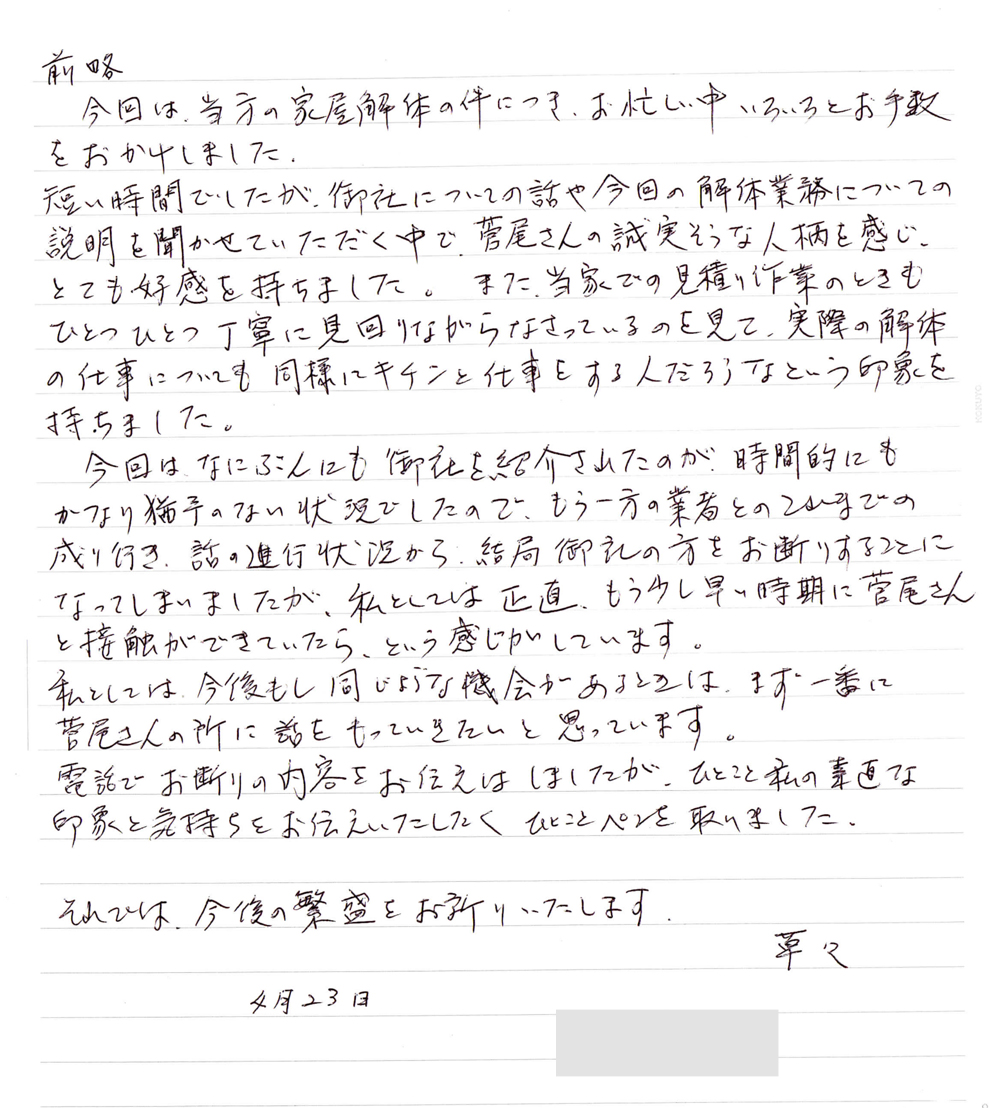 前略
今回は、当方の家屋解体の件につき、お忙しい中いろいろとお手数
をおかけしました。
短い時間でしたが、御社についての話や今回の解体業務についての
説明を聞かせていただく中で、菅尾さんの誠実そうな人柄を感じ、
とても好感を持ちました。また、当家での見積り作業のときも
ひとつひとつ丁寧に見回りながらなさっているのを見て、実際の解体
の仕事についても同様にキチンと仕事をする人だろうなという印象を
持ちました。
今回は、なにぶんにも御社を紹介されたのが、時間的にも
かなり猶予のない状況でしたので、もう一方の業者とのこれまでの
成り行き、話の進行状況から、結局御社の方をお断りすることに
なってしまいましたが、私としては正直、もう少し早い時期に菅尾さん
と接触ができていたら、という感じがしています。
私としては、今後もし同じような機会があるときは、まず一番に
菅尾さんの所に話をもっていきたいと思っています。
電話でお断りの内容をお伝えはしましたが、ひとこと私の素直な
印象と気持ちをお伝えいたしたくひとことペンを取りました。
それでは、今後の繁盛をお祈りいたします。
草々
4月23日